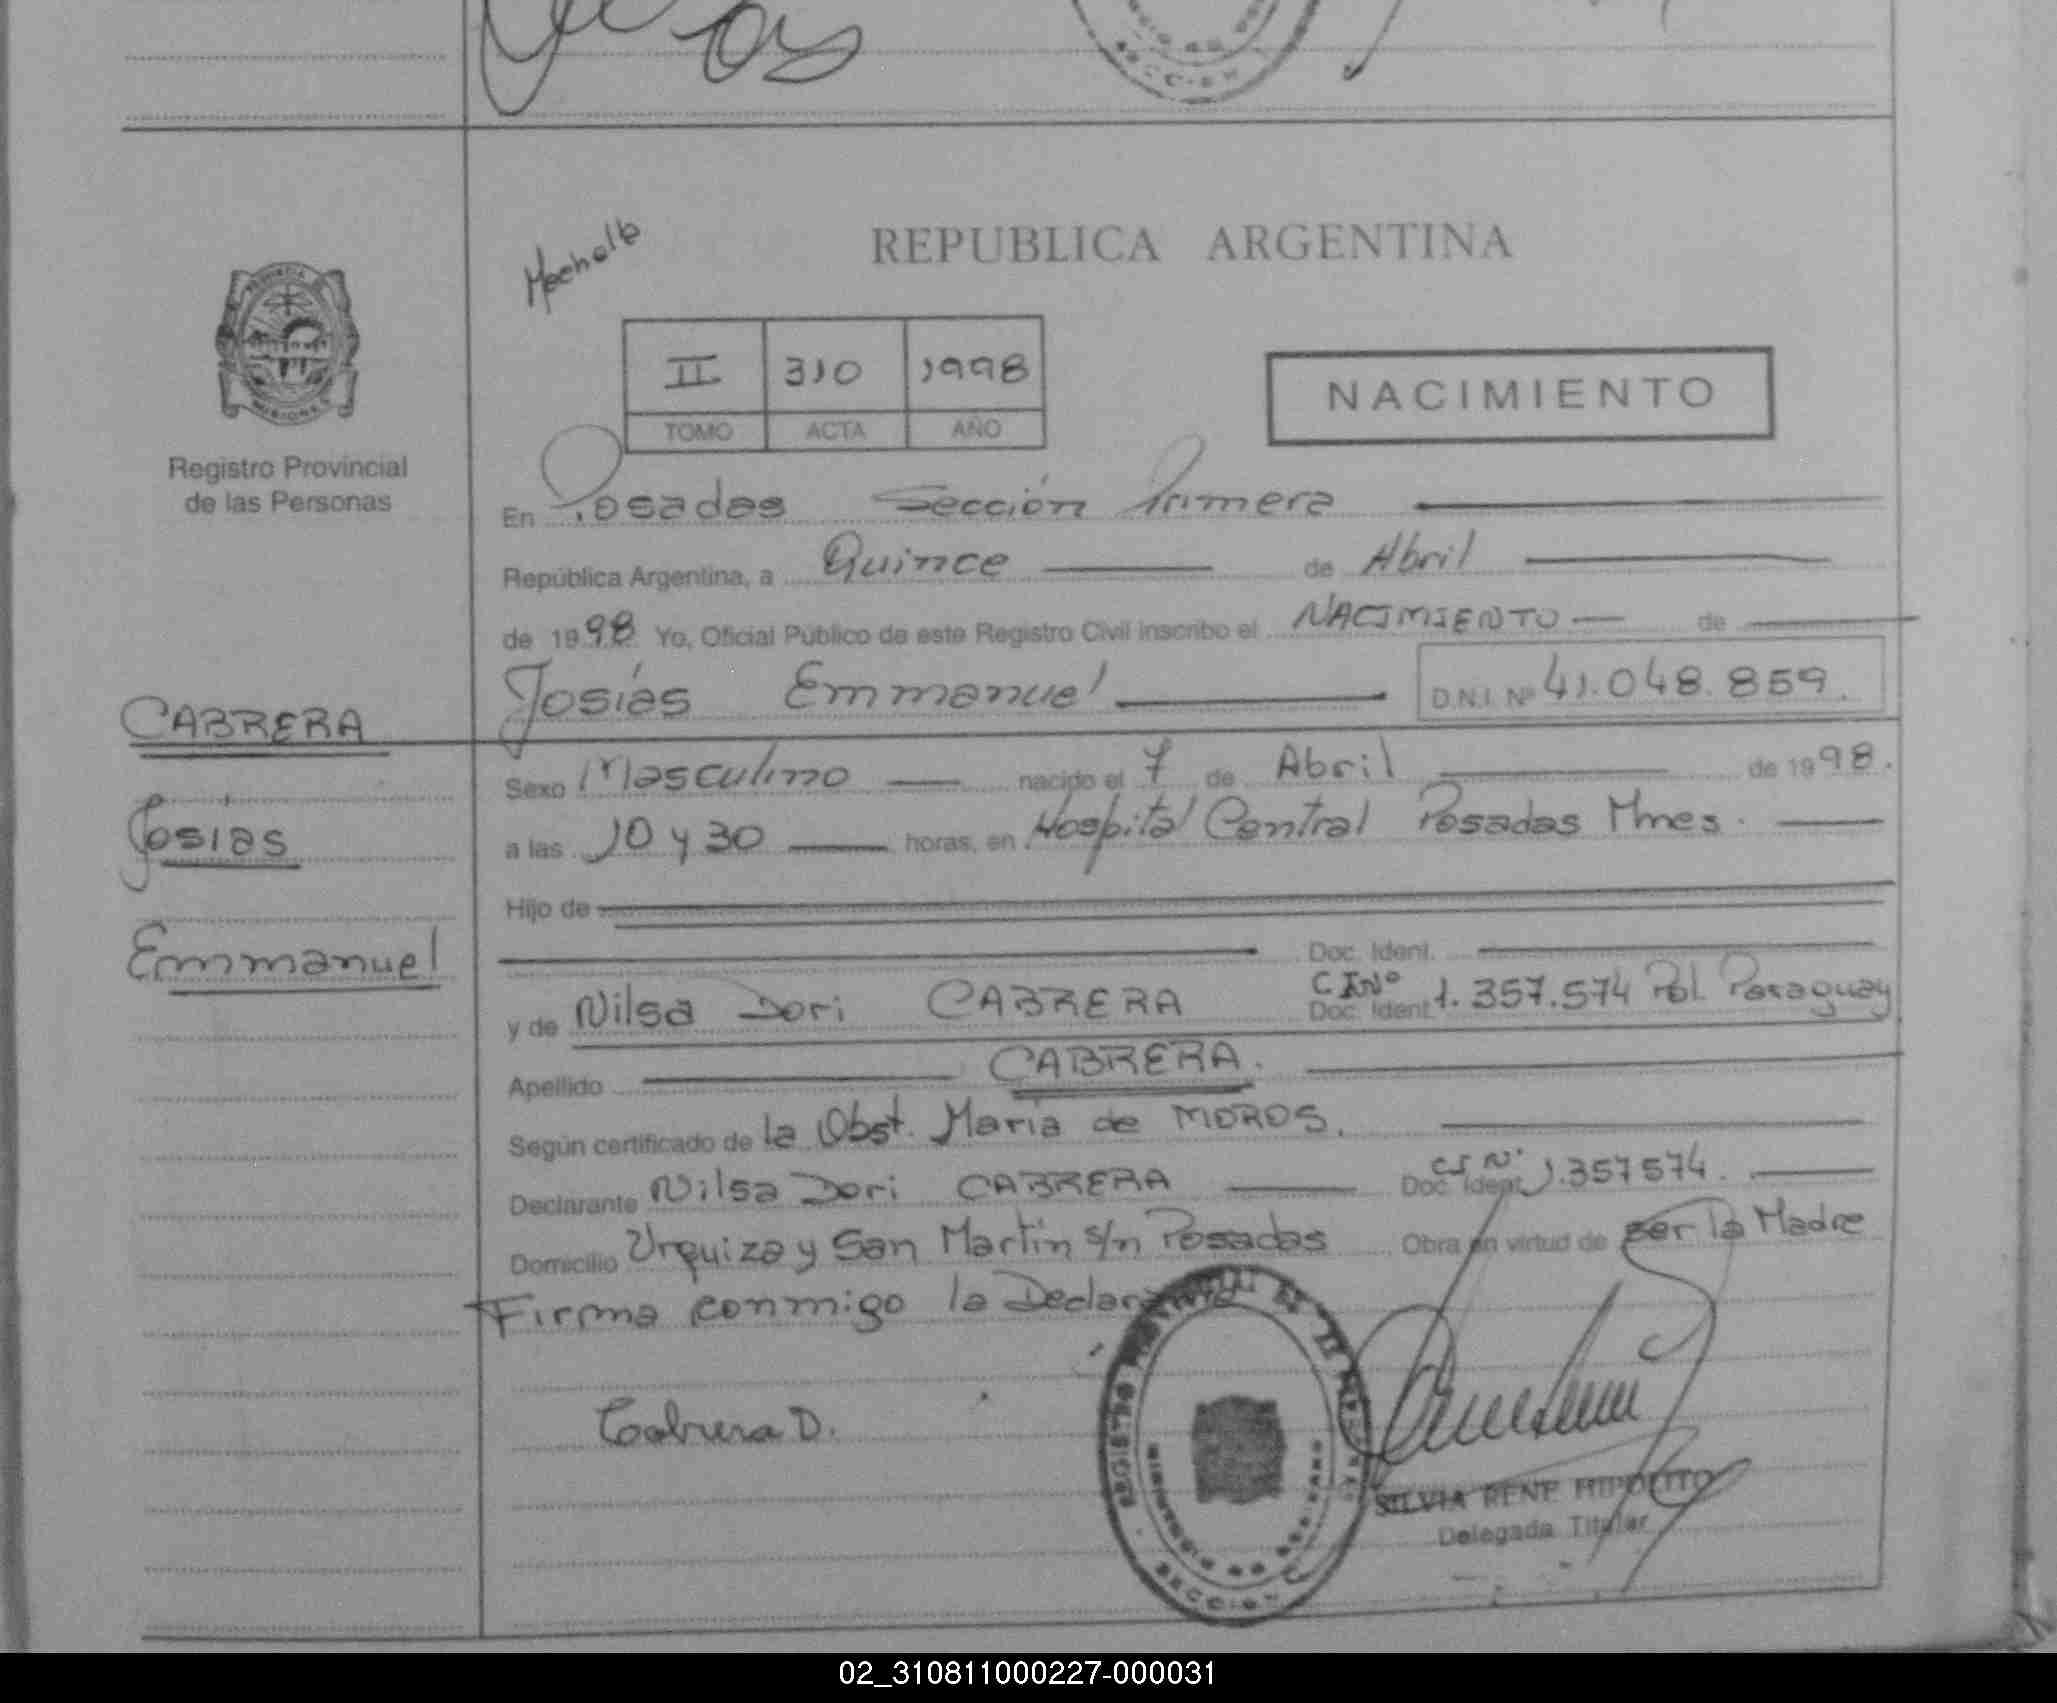 REPUBLICA ARGENTINA
II 310 1998
TOMO ACTA AÑO
NACIMIENTO
Registro Provincial
de las Personas
En Posadas Sección Primera
República Argentina, a Quince de Abril
de 1998 Yo, Oficial Público de este Registro Civil inscribo el NACIMIENTO de
Josías Emmanuel D.N.I. Nº 41.048.859.
CABRERA
Josías
Emmanuel
Sexo Masculino nacido el 7 de Abril de 1998.
a las 10 y 30 horas, en Hospital Central Posadas Mnes.
Hijo de
Doc. Ident.
y de Nilsa Dori CABRERA Doc. Ident. CINº 1.357.574 Pol. Paraguay
Apellido CABRERA.
Según certificado de la Obst. María de MOROS.
Declarante Nilsa Dori CABRERA Doc. Ident. CI Nº 1.357574.
Domicilio Urquiza y San Martín s/n Posadas Obra en virtud de ser la Madre
Firma conmigo la Declarante
Cabrera D.
SILVIA RENE HIPOLITO
Delegada Titular
02_310811000227-000031